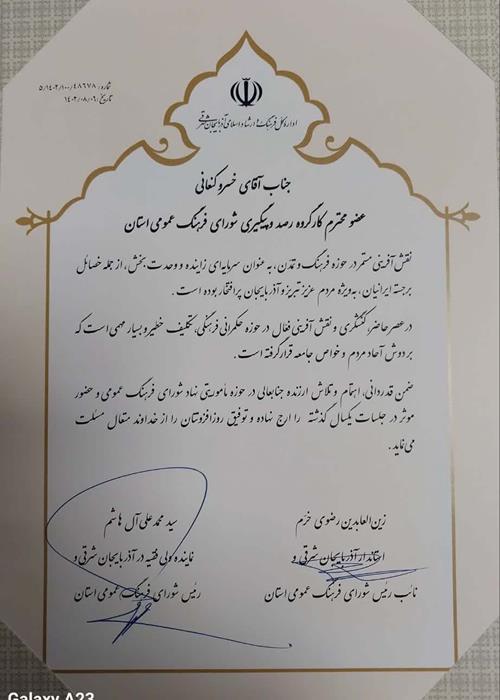 شماره: ۵/۱۴۰۲/۱۰۰/۴۸۶۷۸
تاریخ: ۱۴۰۲/۰۸/۰۶
اداره کل فرهنگ و ارشاد اسلامی آذربایجان شرقی
جناب آقای خسرو کنعانی
عضو محترم کارگروه رصد و پیگیری شورای فرهنگ عمومی استان
نقش آفرینی مستمر در حوزه فرهنگ و تمدن، به عنوان سرمایه‌ای زاینده و وحدت بخش، از جمله خصائل
برجسته ایرانیان، به‌ویژه مردم عزیز تبریز و آذربایجان پر افتخار بوده است.
در عصر حاضر، کنشگری و نقش آفرینی فعال در حوزه حکمرانی فرهنگی، تکلیف خطیر و بسیار مهمی است که
بر دوش آحاد مردم و خواص جامعه قرار گرفته است.
ضمن قدردانی، اهتمام و تلاش ارزنده جنابعالی در حوزه مأموریتی نهاد شورای فرهنگ عمومی و حضور
موثر در جلسات یکسال گذشته را ارج نهاده و توفیق روزافزونتان را از خداوند متعال مسئلت
می‌نماید.
زین العابدین رضوی خرم
استاندار آذربایجان شرقی و
نائب رئیس شورای فرهنگ عمومی استان
سید محمد علی آل هاشم
نماینده ولی فقیه در آذربایجان شرقی و
رئیس شورای فرهنگ عمومی استان
Galaxy A23